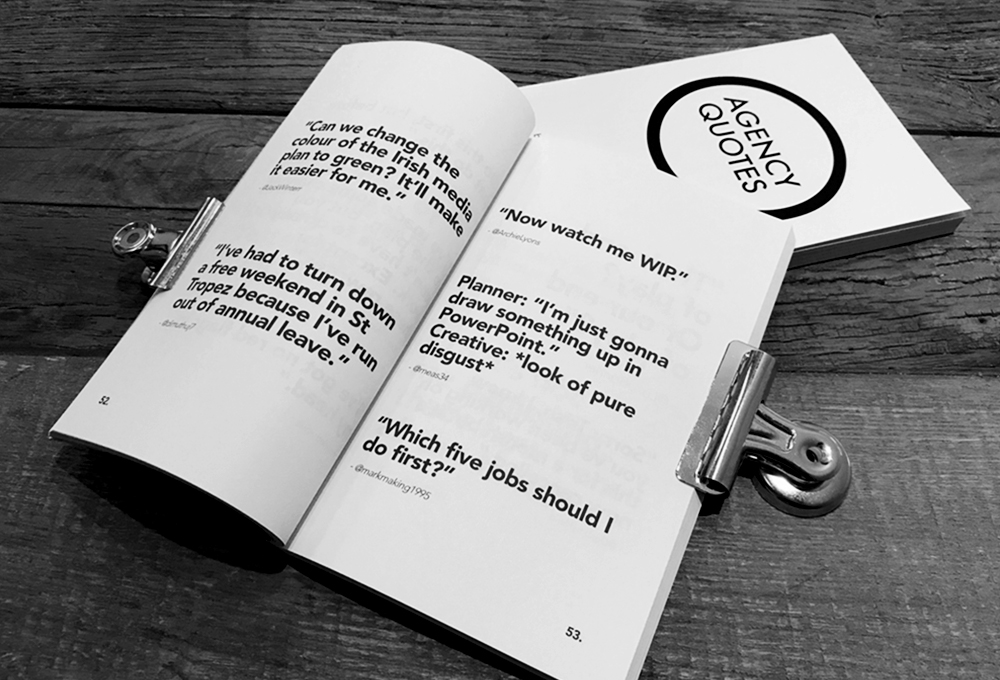 "Can we change the
colour of the Irish media
plan to green? It'll make
it easier for me."
"I've had to turn down
a free weekend in St
Tropez because I've run
out of annual leave."
52.
"Now watch me WIP."
- @ArchieLyons
Planner: "I'm just gonna
draw something up in
PowerPoint."
Creative: *look of pure
disgust*
- @meas34
"Which five jobs should I
do first?"
- @markmaking1995
53.
AGENCY
QUOTES